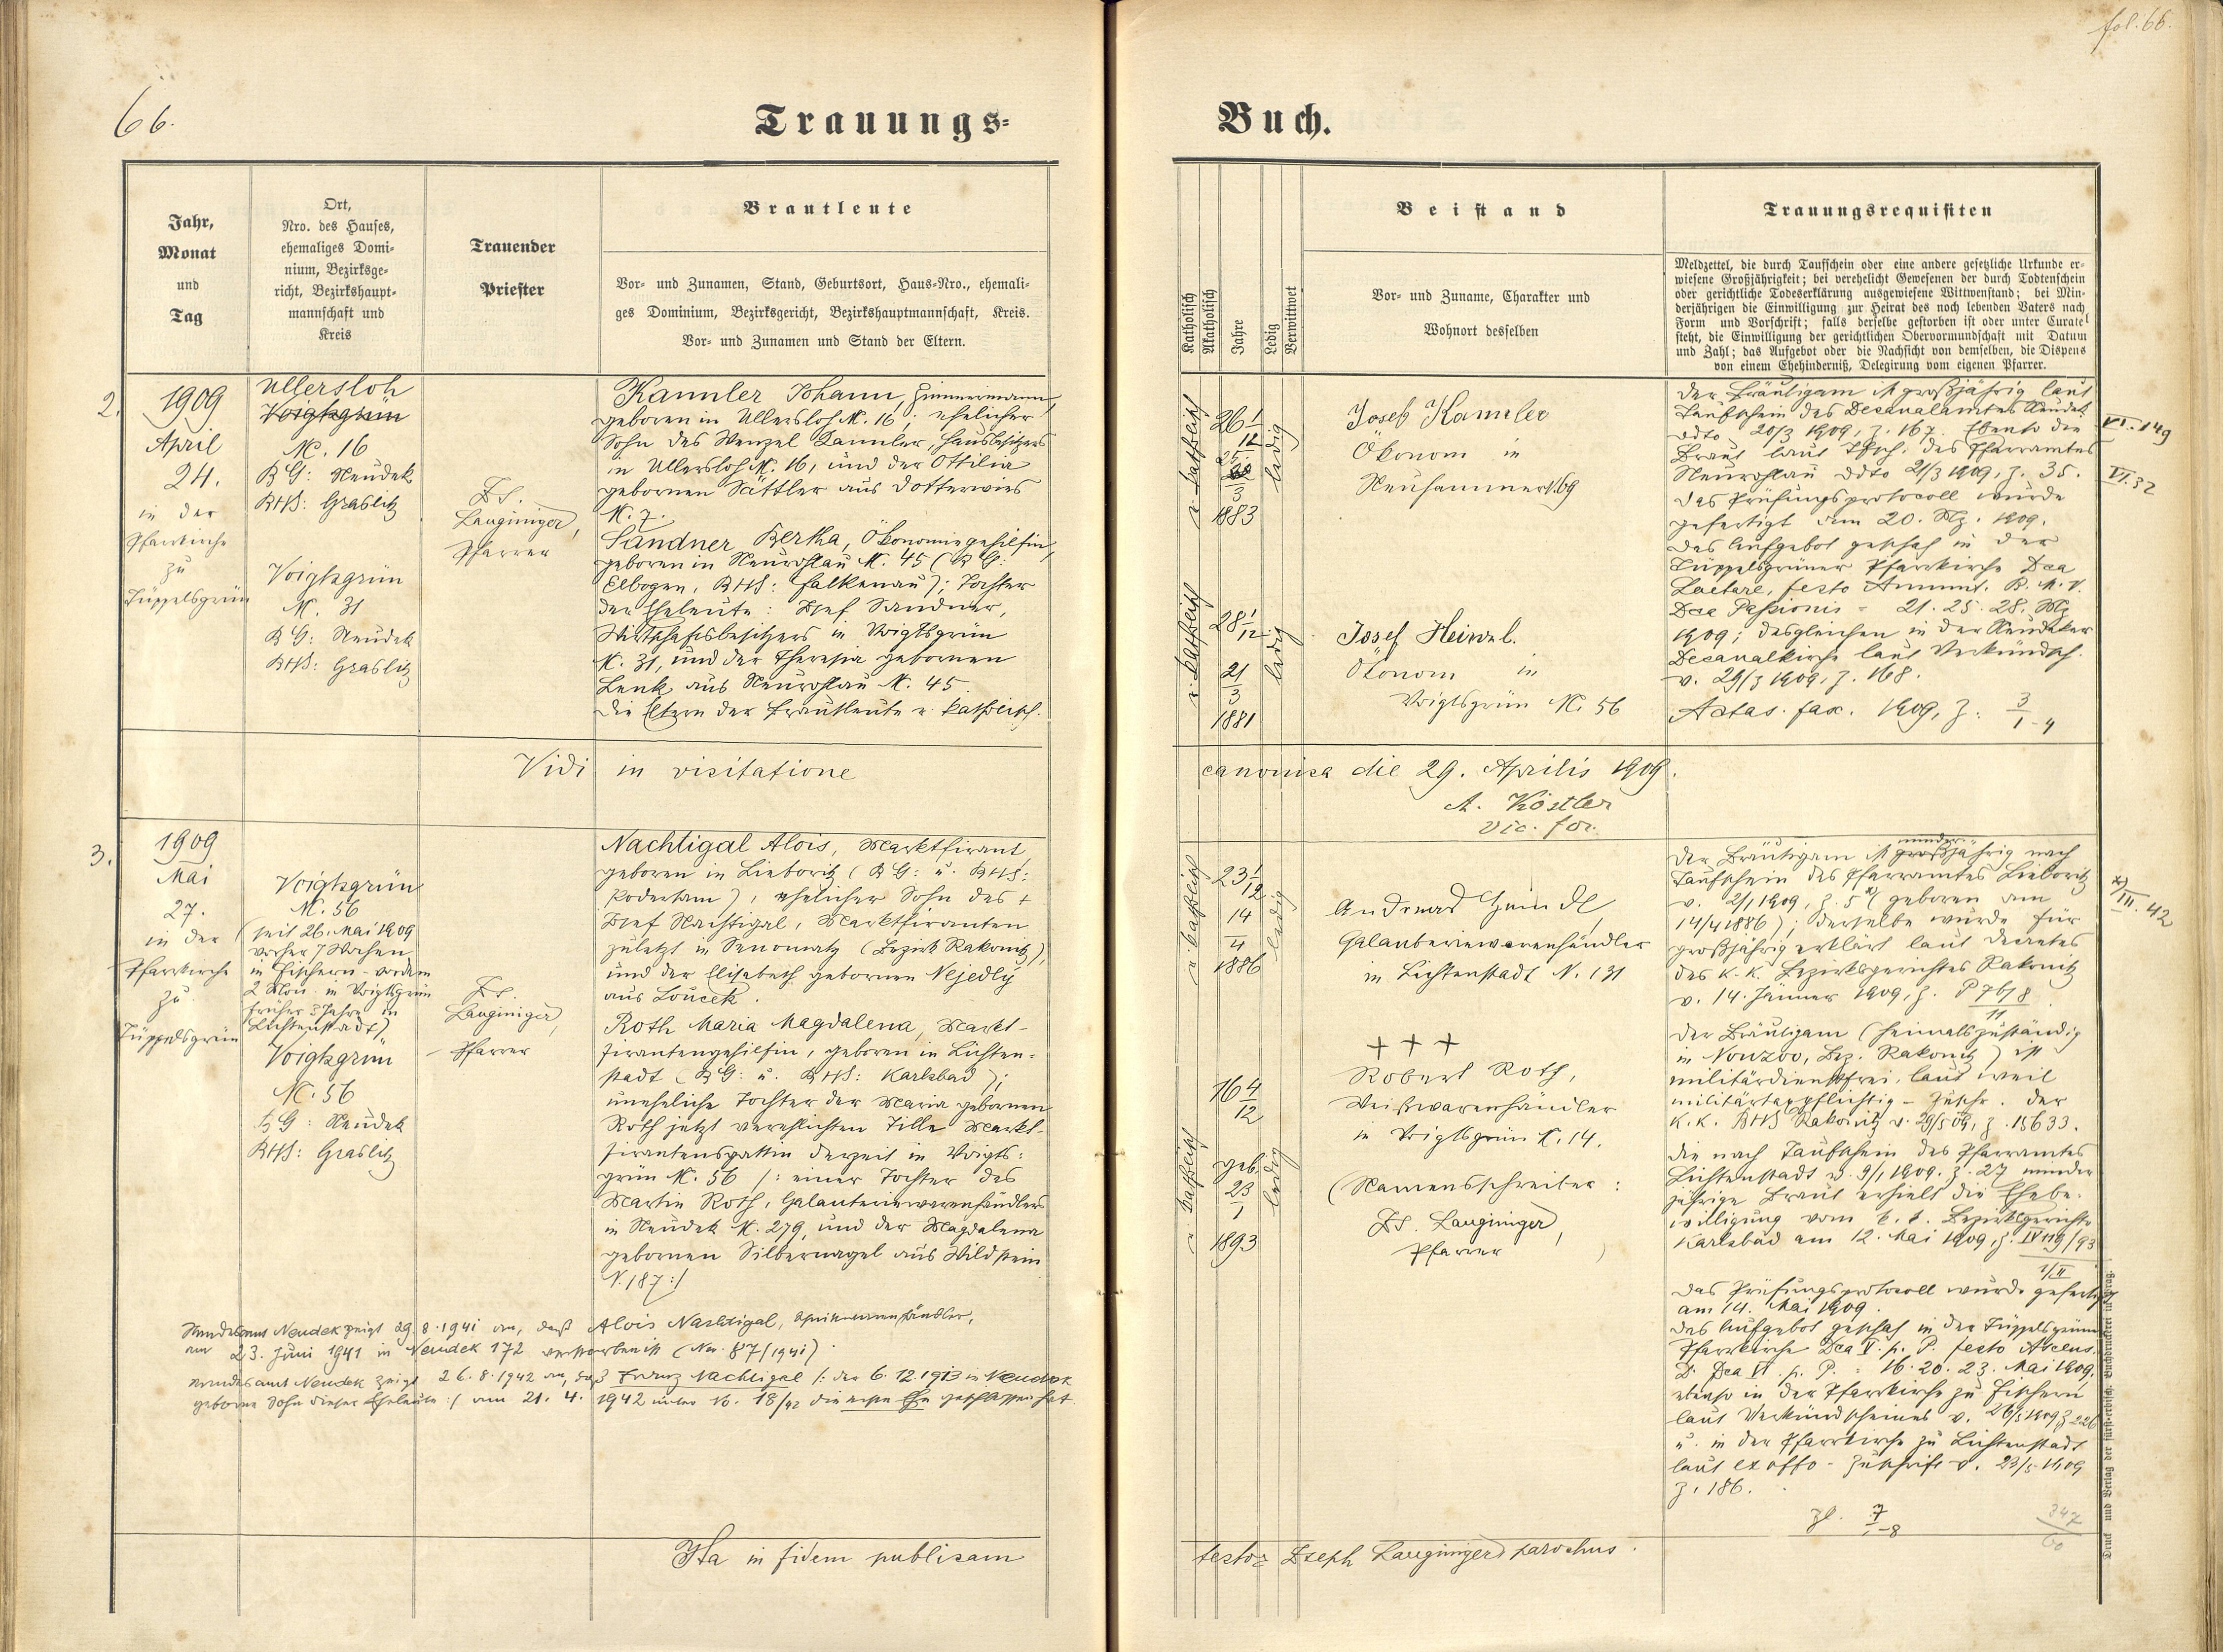 fol. 66.
66.
Trauungs-
Buch.
Jahr,
Monat
und
Tag
Ort,
Nro. des Hauses,
ehemaliges Domi-
nium, Bezirksge-
richt, Bezirkshaupt-
mannschaft und
Kreis
Trauender
Priester
Brautleute
Vor- und Zunamen, Stand, Geburtsort, Haus-Nro., ehemali-
ges Dominium, Bezirksgericht, Bezirkshauptmannschaft, Kreis.
Vor- und Zunamen und Stand der Eltern.
Katholisch
Akatholisch
Jahre
Ledig
Verwittwet
Beistand
Vor- und Zuname, Charakter und
Wohnort desselben
Trauungsrequisiten
Meldzettel, die durch Taufschein oder eine andere gesetzliche Urkunde er-
wiesene Großjährigkeit; bei verehelicht Gewesenen der durch Todtenschein
oder gerichtliche Todeserklärung ausgewiesene Wittwenstand; bei Min-
derjährigen die Einwilligung zur Heirat des noch lebenden Vaters nach
Form und Vorschrift; falls derselbe gestorben ist oder unter Curatel
steht, die Einwilligung der gerichtlichen Obervormundschaft mit Datum
und Zahl; das Aufgebot oder die Nachsicht von demselben, die Dispens
von einem Ehehinderniß, Delegirung vom eigenen Pfarrer.
2.
1909
April
24.
in der
Pfarrkirche
zu
Tüppelsgrün
Ullersloh
Voigtsgrün
N. 16
BG: Neudek
BHS: Graslitz
Voigtsgrün
N. 31
BG: Neudek
BHS: Graslitz
Js.
Lauginiger,
Pfarrer
Kannler Johann, Zimmermann,
geboren in Ullersloh N. 16; ehelicher
Sohn des Wenzel Kannler, Hausbesitzers
in Ullersloh N. 16, und der Ottilia
gebornen Sättler aus Dotterwies
N. 7.
Sandner Bertha, Ökonomiegehilfin,
geboren in Neurohlau N. 45 (BG:
Elbogen, BHS: Falkenau); Tochter
der Eheleute: Josef Sandner,
Wirtschaftsbesitzers in Voigtsgrün
N. 31, und der Theresia gebornen
Lenk aus Neurohlau N. 45.
Die Eltern der Brautleute r. katholisch.
r. katholisch
26 1/12
25
3
1883
ledig
r. katholisch
28 1/12
21
3
1881
ledig
Josef Kannler
Ökonom in
Neuhammer N. 69
Josef Heinzl.
Ökonom in
Voigtsgrün N. 56
Der Bräutigam ist großjährig laut
Taufschein des Decanalamtes Neudek
ddto 20/3 1909, Z. 167. Ebenso die
Braut laut Tfsch. des Pfarramtes
Neurohlau ddto 2/3 1909, Z. 35.
Das Prüfungsprotocoll wurde
gefertigt am 20. Mz. 1909.
Das Aufgebot geschah in der
Tüppelsgrüner Pfarrkirche Dca
Laetare, festo Annunt. B. M. V.
Dca Passionis = 21. 25. 28. Mz
1909; desgleichen in der Neudeker
Decanalkirche laut Verkündsch.
v. 29/3 1909, Z. 168.
Actas. fasc. 1909, Z. 3/1-4
VI. 149
VI. 32
Vidi in visitatione canonica die 29. Aprilis 1909.
A. Köstler
vic. for.
3.
1909
Mai
27.
in der
Pfarrkirche
zu
Tüppelsgrün
Voigtsgrün
N. 56
(seit 26. Mai 1909
vorher 7 Wochen
in Fischern - vordem
2 Mon. in Voigtsgrün
früher 5 Jahre in
Lichtenstadt)
Voigtsgrün
N. 56
BG: Neudek
BHS: Graslitz
Js.
Lauginiger,
Pfarrer
Nachtigal Alois, Marktfirant,
geboren in Lieboritz (BG: u. BHS:
Podersam), ehelicher Sohn des +
Josef Nachtigal, Marktfiranten
zuletzt in Senomatz (Bezirk Rakonitz),
und der Elisabeth gebornen Nejedlý
aus Louček.
Roth Maria Magdalena, Markt-
firantengehilfin, geboren in Lichten-
stadt (BG: u. BHS: Karlsbad);
uneheliche Tochter der Maria gebornen
Roth jetzt verehlichten Tille Markt-
firantensgattin derzeit in Voigts-
grün N. 56 /: einer Tochter des
Martin Roth, Galanteriewarenhändlers
in Neudek N. 279, und der Magdalena
gebornen Silbernagel aus Wildstein
N. 187 :/
r. katholisch
23 1/12
14
4
1886
ledig
r. katholisch
16 4/12
geb.
23
1
1893
ledig
Andreas Heindl,
Galanteriewarenhändler
in Lichtenstadt N. 131
+ + +
Robert Roth,
Weißwarenhändler
in Voigtsgrün N. 14.
(Namensschreiber:
Js. Lauginiger,
Pfarrer )
Der Bräutigam ist großjährig nach
minder
Taufschein des Pfarramtes Lieboritz
v. 2/1 1909, Z. 5 x) (geboren am
14/4 1886); derselbe wurde für
großjährig erklärt laut Decretes
des k. k. Bezirksgerichtes Rakonitz
v. 14. Jänner 1909, Z. P 76/8
11
Der Bräutigam (heimatszuständig
in Nouzov, Bez. Rakonitz) ist
militärdienstfrei, laut weil
militärtaxpflichtig - Zuschr. der
k. k. BHS Rakonitz v. 29/5 09, Z. 15633.
Die nach Taufschein des Pfarramtes
Lichtenstadt v. 9/1 1909. Z. 27 minder
jährige Braut erhielt die Ehebe-
willigung vom k. k. Bezirksgerichte
Karlsbad am 12. Mai 1909, Z. IV 119/93
1/II
Das Prüfungsprotocoll wurde gefertigt
am 14. Mai 1909.
Das Aufgebot geschah in der Tüppelsgrüner
Pfarrkirche Dca V. p. P. festo Ascens.
D. Dca VI p. P. = 16. 20. 23. Mai 1909,
ebenso in der Pfarrkirche zu Fischern
laut Verkündscheines v. 26/5 1909 Z 226
u. in der Pfarrkirche zu Lichtenstadt
laut ex offo - Zuschrift v. 23/5 1909
Z. 186.
7/1-8
347
60
x)
III. 42
Standesamt Neudek zeigt 29.8.1941 an, daß Alois Nachtigal,
am 23. Juni 1941 in Neudek 172 verstorben ist (Nr. 87/1941).
Standesamt Neudek zeigt 26.8.1942 an, daß Franz Nachtigal /: der 6.12.1913 in Neudek
geborne Sohn dieser Eheleute :/ am 21. 4. 1942 unter N. 18/42 die erste Ehe geschlossen hat.
Ita in fidem publicam testor Joseph Lauginiger parochus.
Druck und Verlag der fürst-erzbisch. Buchdruckerei in Prag.